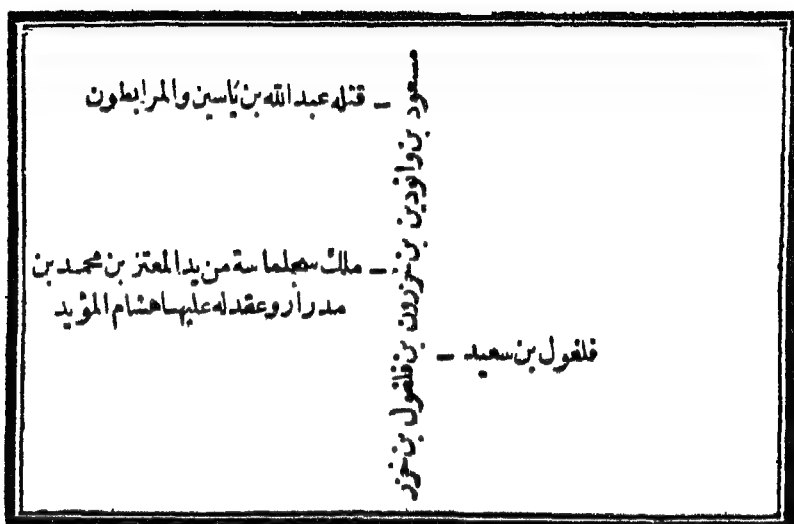 مسعود بن وانودين بن خزرون بن فلفول بن خزر
– قتله عبد الله بن ياسين والمرابطون
– ملك سجلماسة من يد المعتز بن محمد بن
مدرار وعقد له عليها هشام المؤيد
فلفول بن سعيد –